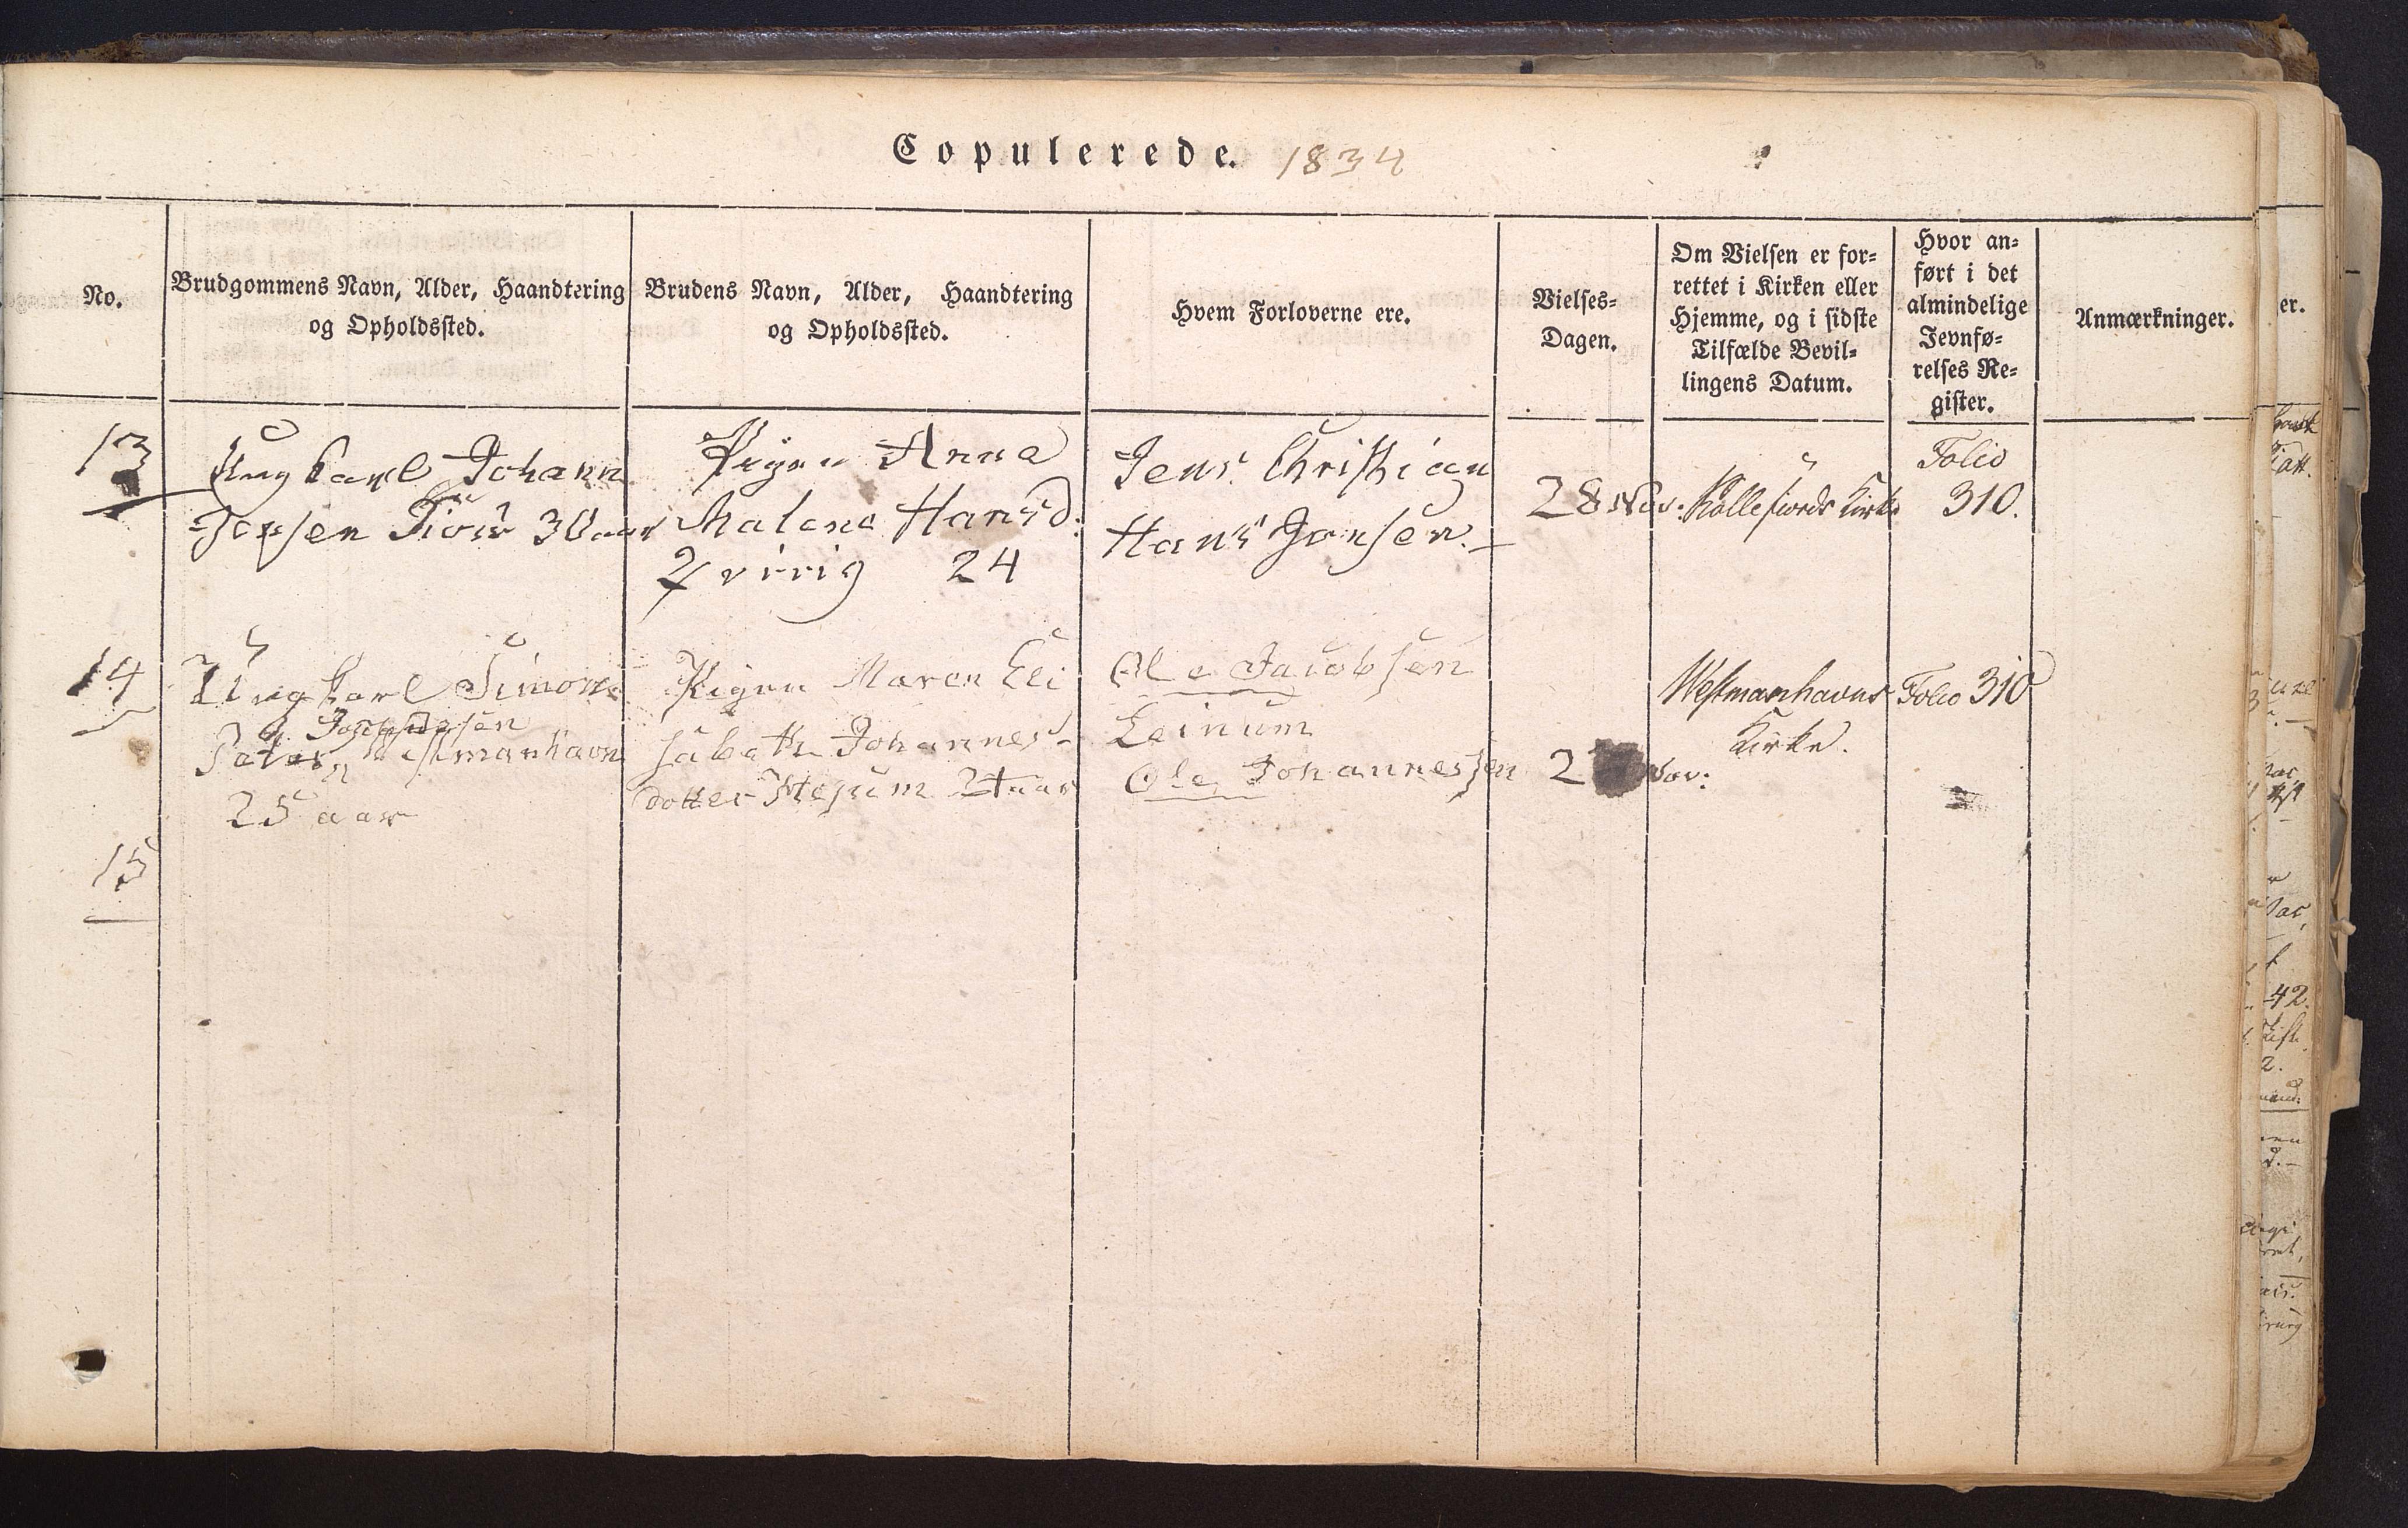 Copulerede. 1834
No.
Brudgommens Navn, Alder, Haandtering
og Opholdssted.
Brudens Navn, Alder, Haandtering
og Opholdssted.
Hvem Forloverne ere.
Vielses-
Dagen.
Om Vielsen er for-
rettet i Kirken eller
Hjemme, og i sidste
Tilfælde Bevil-
lingens Datum.
Hvor an-
ført i det
almindelige
Jevnfø-
relses Re-
gister.
Anmærkninger.
er.
13
Ungkarl Johann
30 aar
Pigen Anna
Malena Hansd:
24
Jens Christian
Hans Jensen.
28 Nov:
Kollefiords Kirke
Folio
310.
14
Ungkarl Simon
Peter Westmanhavn
25 aar
Pigen Maren Eli
sabeth Johannes-
dotter 24 aar
Ole Jacobsen
Leinum
Ole Johannessen
2 Nov:
Westmanhavns
Kirke.
Folio 310
15